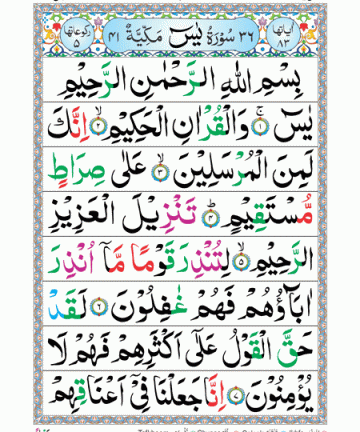 اٰیاتها ٨٣ ٣٦ سُوْرَةُ يٰسٓ مَكِّيَّةٌ ٤١ رکوعاتها ٥
بِسْمِ اللّٰهِ الرَّحْمٰنِ الرَّحِيْمِ
يٰسٓ ۚ﴿١﴾ وَالْقُرْاٰنِ الْحَكِيْمِ ۙ﴿٢﴾ اِنَّكَ
لَمِنَ الْمُرْسَلِيْنَ ۙ﴿٣﴾ عَلٰى صِرَاطٍ
مُّسْتَقِيْمٍ ؕ﴿٤﴾ تَنْزِيْلَ الْعَزِيْزِ
الرَّحِيْمِ ۙ﴿٥﴾ لِتُنْذِرَ قَوْمًا مَّاۤ اُنْذِرَ
اٰبَآؤُهُمْ فَهُمْ غٰفِلُوْنَ ﴿٦﴾ لَقَدْ
حَقَّ الْقَوْلُ عَلٰٓى اَكْثَرِهِمْ فَهُمْ لَا
يُؤْمِنُوْنَ ﴿٧﴾ اِنَّا جَعَلْنَا فِيْۤ اَعْنَاقِهِمْ